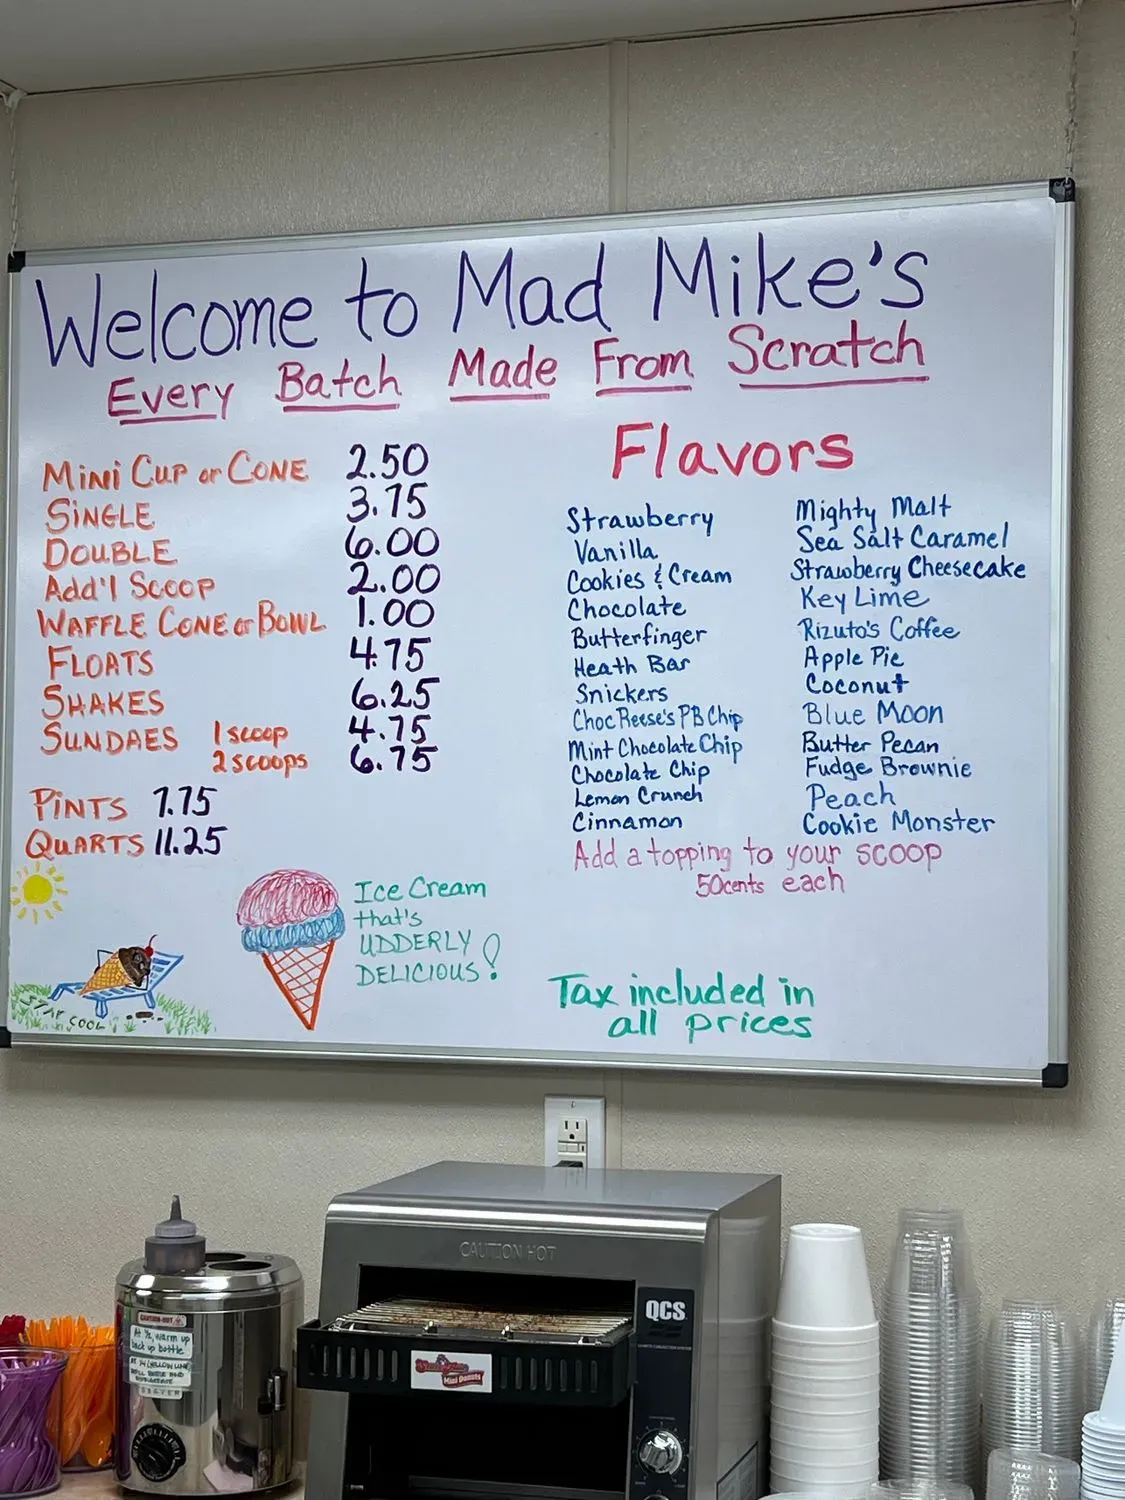 Welcome to Mad Mike's
Every Batch Made From Scratch
MINI CUP or CONE 2.50
SINGLE 3.75
DOUBLE 6.00
Add'l SCOOP 2.00
WAFFLE CONE or BOWL 1.00
FLOATS 4.75
SHAKES 6.25
SUNDAES 1 scoop 4.75
2 scoops 6.75
PINTS 7.75
QUARTS 11.25
Flavors
Strawberry
Vanilla
Cookies & Cream
Chocolate
Butterfinger
Heath Bar
Snickers
Choc Reese's PB Chip
Mint Chocolate Chip
Chocolate Chip
Lemon Crunch
Cinnamon
Mighty Malt
Sea Salt Caramel
Strawberry Cheesecake
Key Lime
Rizuto's Coffee
Apple Pie
Coconut
Blue Moon
Butter Pecan
Fudge Brownie
Peach
Cookie Monster
Add a topping to your scoop
50cents each
Ice Cream
that's
UDDERLY
DELICIOUS!
STAY COOL
Tax included in
all prices
CAUTION HOT
QCS
Mini Donuts
CAUTION-HOT
At 1/2, warm up
back up bottle
SERVER